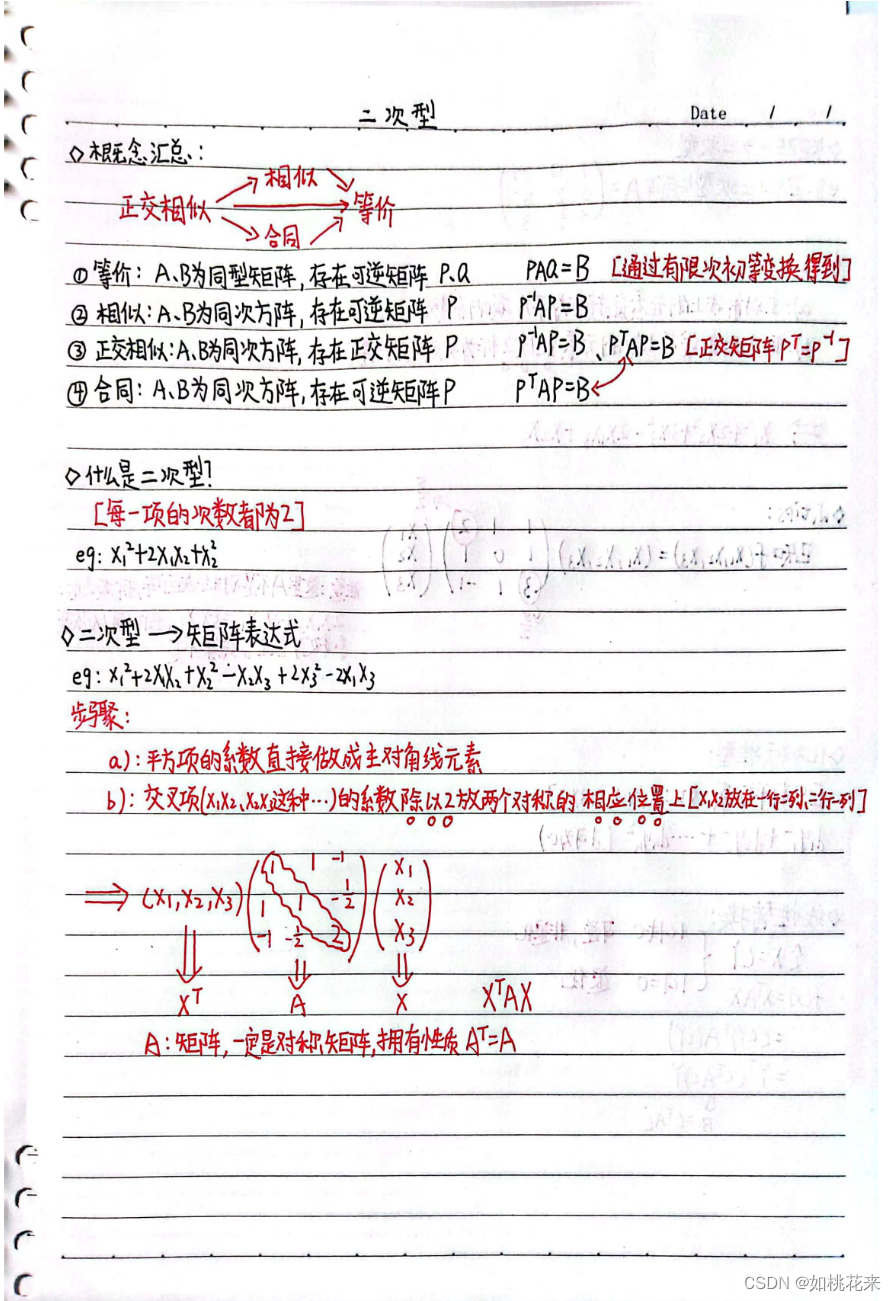 二次型
Date / /
◇概念汇总：
相似
正交相似 等价
合同
① 等价：A、B为同型矩阵，存在可逆矩阵 P、Q PAQ=B [通过有限次初等变换得到]
② 相似：A、B为同次方阵，存在可逆矩阵 P P⁻¹AP=B
③ 正交相似：A、B为同次方阵，存在正交矩阵 P P⁻¹AP=B、PᵀAP=B [正交矩阵 Pᵀ=P⁻¹]
④ 合同：A、B为同次方阵，存在可逆矩阵P PᵀAP=B
◇什么是二次型？
[每一项的次数都为2]
eg: x₁²+2x₁x₂+x₂²
◇二次型→矩阵表达式
eg: x₁²+2x₁x₂+x₂²-x₂x₃+2x₃²-2x₁x₃
步骤：
a)：平方项的系数直接做成主对角线元素
b)：交叉项(x₁x₂、x₂x₃这种…)的系数除以2放两个对称的相应位置上[x₁x₂放在一行二列，二行一列]
1 1 -1 x₁
⇒ (x₁,x₂,x₃) 1 1 -1/2 x₂
-1 -1/2 2 x₃
Xᵀ A X XᵀAX
A：矩阵，一定是对称矩阵，拥有性质 Aᵀ=A
CSDN @如桃花来